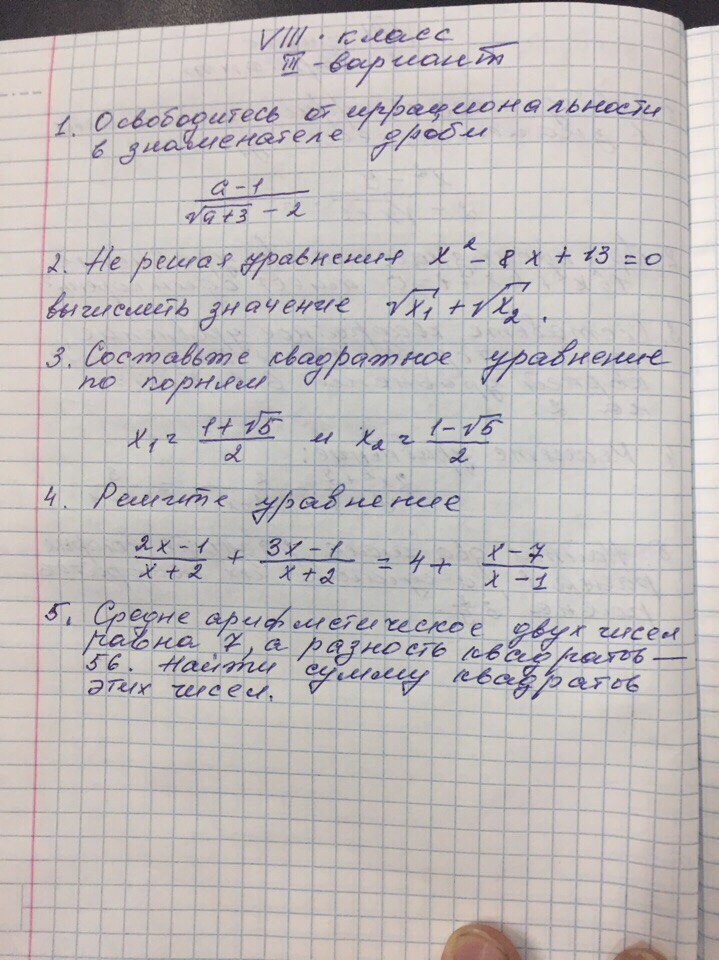 VIII. класс
III - вариант
1. Освободитесь от иррациональности
в знаменателе дроби
(a-1)/(√(a+3) - 2)
2. Не решая уравнения x² - 8x + 13 = 0
вычислить значение √x₁ + √x₂.
3. Составьте квадратное уравнение
по корням
x₁ = (1+√5)/2 и x₂ = (1-√5)/2
4. Решите уравнение
(2x-1)/(x+2) + (3x-1)/(x+2) = 4 + (x-7)/(x-1)
5. Средне арифметическое двух чисел
равна 7, а разность квадратов —
56. Найти сумму квадратов
этих чисел.